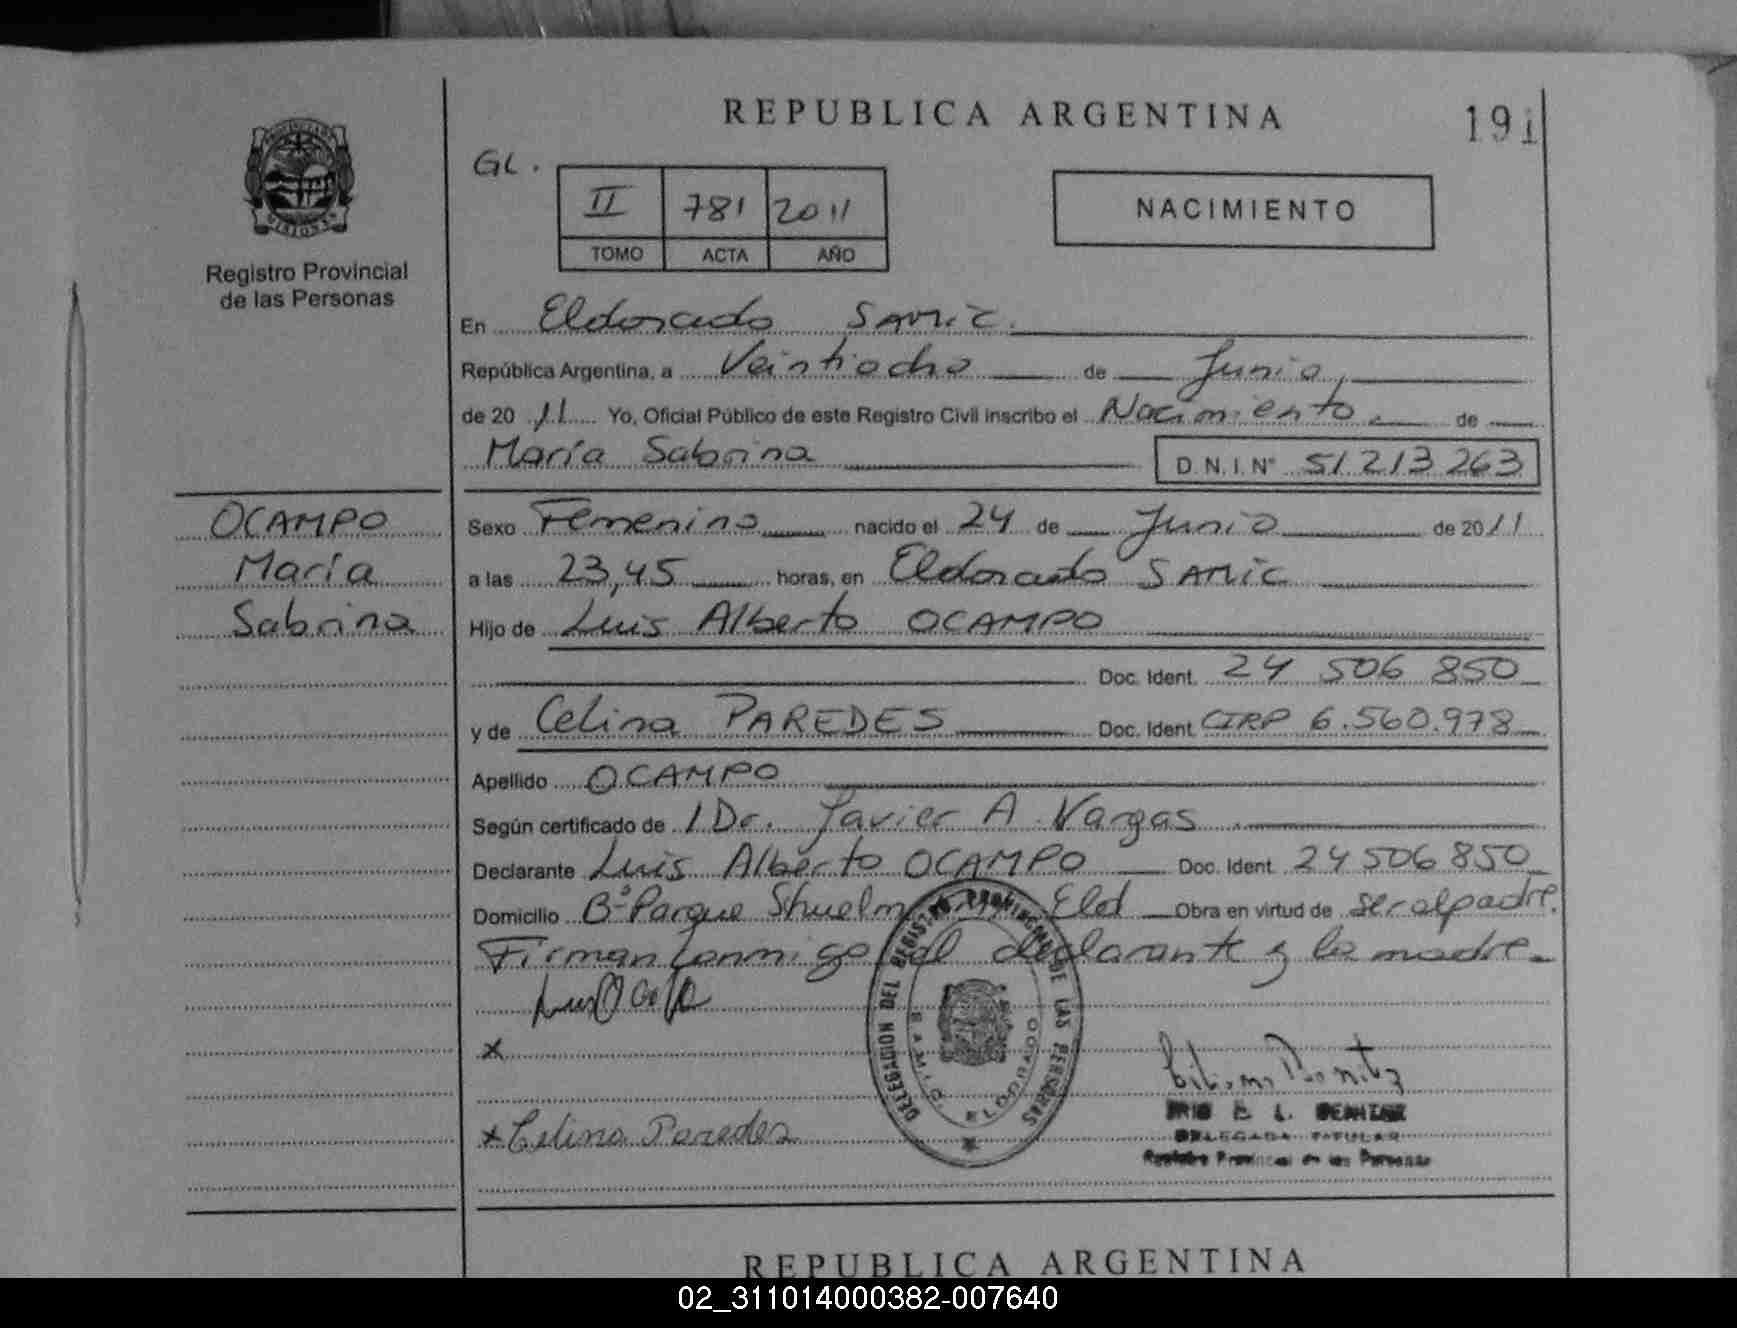 REPUBLICA ARGENTINA
191
GL.
II 781 2011
TOMO ACTA AÑO
NACIMIENTO
Registro Provincial
de las Personas
En Eldorado SAMIC.
República Argentina, a Veintiocho de Junio,
de 20 11 Yo, Oficial Público de este Registro Civil inscribo el Nacimiento. de
María Sabrina D.N.I.N° 51 213 263
OCAMPO
María
Sabrina
Sexo Femenino nacido el 24 de Junio de 2011
a las 23,45 horas, en Eldorado SAMIC
Hijo de Luis Alberto OCAMPO
Doc. Ident. 24 506 850
y de Celina PAREDES Doc. Ident. CIRP 6.560.978
Apellido OCAMPO
Según certificado de 1 Dr. Javier A. Vargas
Declarante Luis Alberto OCAMPO Doc. Ident. 24 506 850
Domicilio B° Parque Eld Obra en virtud de ser el padre.
Firman conmigo el declarante y la madre.
x
x Celina Paredes
DELEGACION DEL REGISTRO PROVINCIAL DE LAS PERSONAS
SAMIC. ELDORADO
DELEGADA TITULAR
Registro Provincial de las Personas
REPUBLICA ARGENTINA
02_311014000382-007640